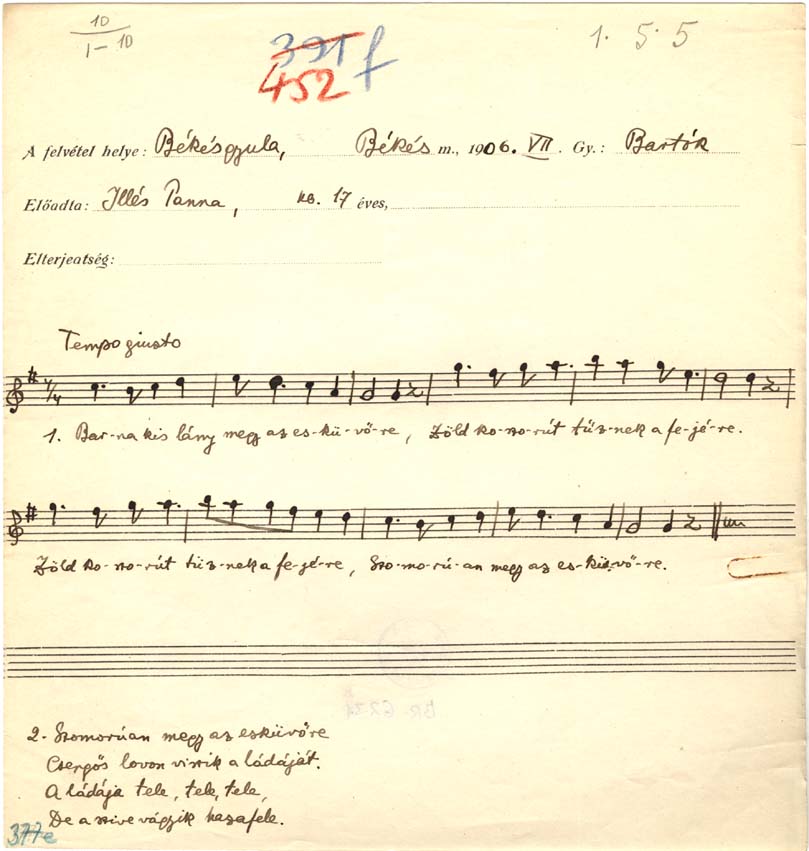 10
1-10
1. 5. 5
391 f
452
A felvétel helye: Békésgyula, Békés m., 1906. VII. Gy.: Bartók
Előadta: Illés Panna, kb. 17 éves,
Elterjeatség:
Tempo giusto
1. Bar-na kis lány megy az es-kü-vő-re, Zöld ko-szo-rút tűz-nek a fe-jé-re.
Zöld ko-szo-rút tűz-nek a fe-jé-re, Szo-mo-rú-an megy az es-kü-vő-re.
BR-
2. Szomorúan megy az esküvőre
Csengős lovon viszik a ládáját.
A ládája tele, tele, tele,
De a szive vágyik hazafele.
377e